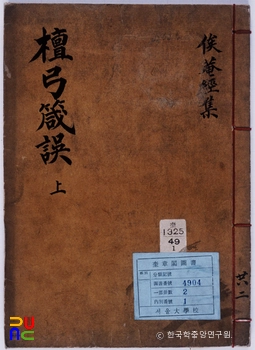 俟菴經集
檀弓箴誤
上
古
1325
49
1
奎章閣圖書
4904
2
1
서울大學校
共二
ⓒ 한국학중앙연구원